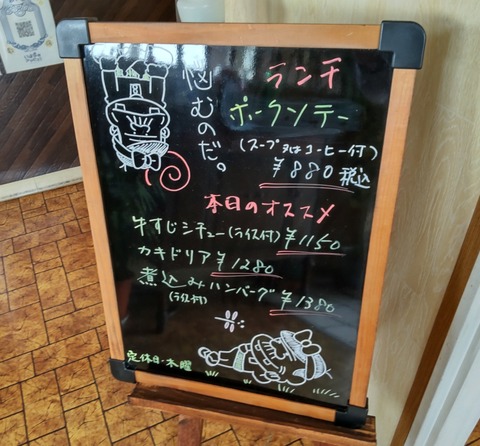 悩むのだ。
ランチ
ポークソテー
(スープ又はコーヒー付)
¥880 税込
本日のオススメ
牛すじシチュー(ライス付) ¥1150
カキドリア ¥1280
煮込みハンバーグ ¥1380
(ライス付)
定休日・木曜